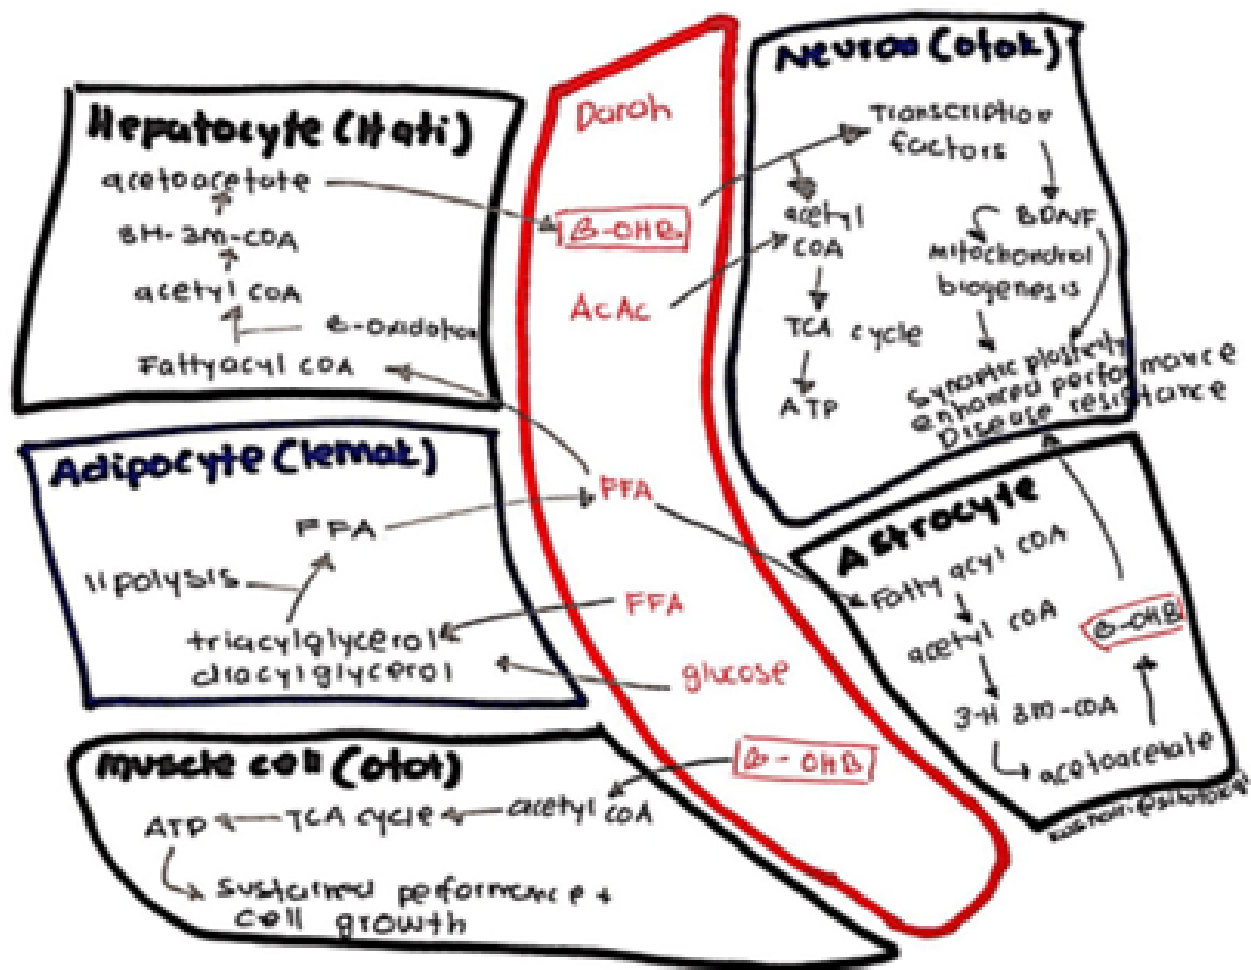 Hepatocyte (Hati)
acetoacetate
3H-3M-COA
acetyl COA
B-Oxidation
Fattyacyl COA
Adipocyte (lemak)
FFA
lipolysis
triacylglycerol
diacylglycerol
muscle cell (otot)
ATP
TCA cycle
acetyl COA
sustained performance +
cell growth
Darah
B-OHB
AcAc
FFA
FFA
glucose
B-OHB
Neuron (otak)
Transcription
factors
acetyl
COA
TCA cycle
ATP
BDNF
mitochondrial
biogenesis
Synaptic plasticity
enhanced performance
Disease resistance
Astrocyte
Fatty acyl COA
acetyl COA
3-H 3M-COA
acetoacetate
B-OHB